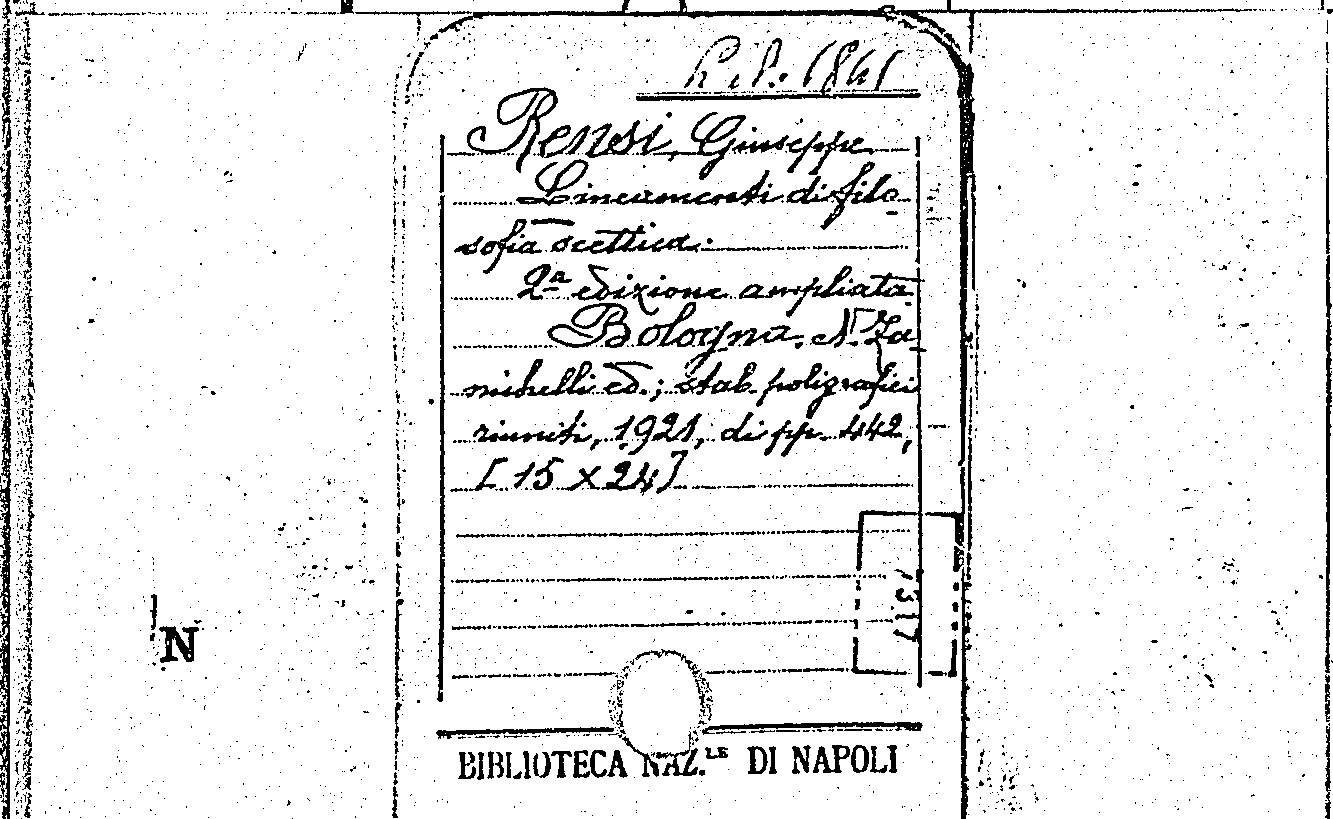 1841
Rensi, Giuseppe
Lineamenti di filo-
sofia scettica.
2ª edizione ampliata.
Bologna. N. Za-
nichelli ed.; stab. poligrafici
riuniti, 1921, di pp. 442,
[15 x 24]
1317
N
BIBLIOTECA NAZ.LE DI NAPOLI